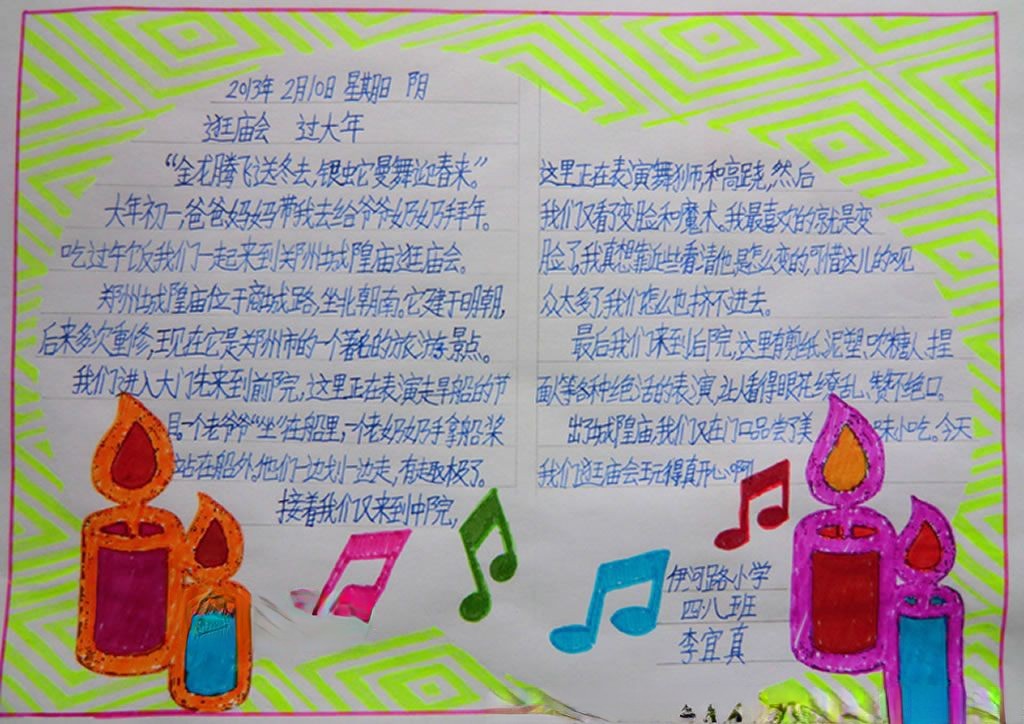 2013年2月10日 星期日 阴
逛庙会 过大年
“金龙腾飞送冬去,银蛇它曼舞迎春来。”
大年初一,爸爸妈妈带我去给爷爷奶奶拜年。
吃过午饭我们一起来到郑州城隍庙逛庙会。
郑州城隍庙位于商城路,坐北朝南。它建于明朝,
后来多次重修,现在它是郑州市的一个著名的旅游景点。
我们进入大门先来到前院,这里正在表演走旱船的节
目,一个老爷爷“坐”在船里,一个老奶奶手拿船桨
站在船外,他们一边划一边走,有趣极了。
接着我们又来到中院,
这里正在表演舞狮,和高跷,然后
我们又看了变脸和魔术。我最喜欢的就是变
脸了,我真想靠近些看清他是怎么变的,可惜这儿的观
众太多了,我们怎么也挤不进去。
最后我们来到后院,这里有剪纸、泥塑、吹糖人、捏
面人等各种绝活的表演,让人看得眼花缭乱、赞不绝口。
出了城隍庙,我们又在门口品尝了美味小吃。今天
我们逛庙会玩得真开心啊!
伊河路小学
四.八班
李宜真